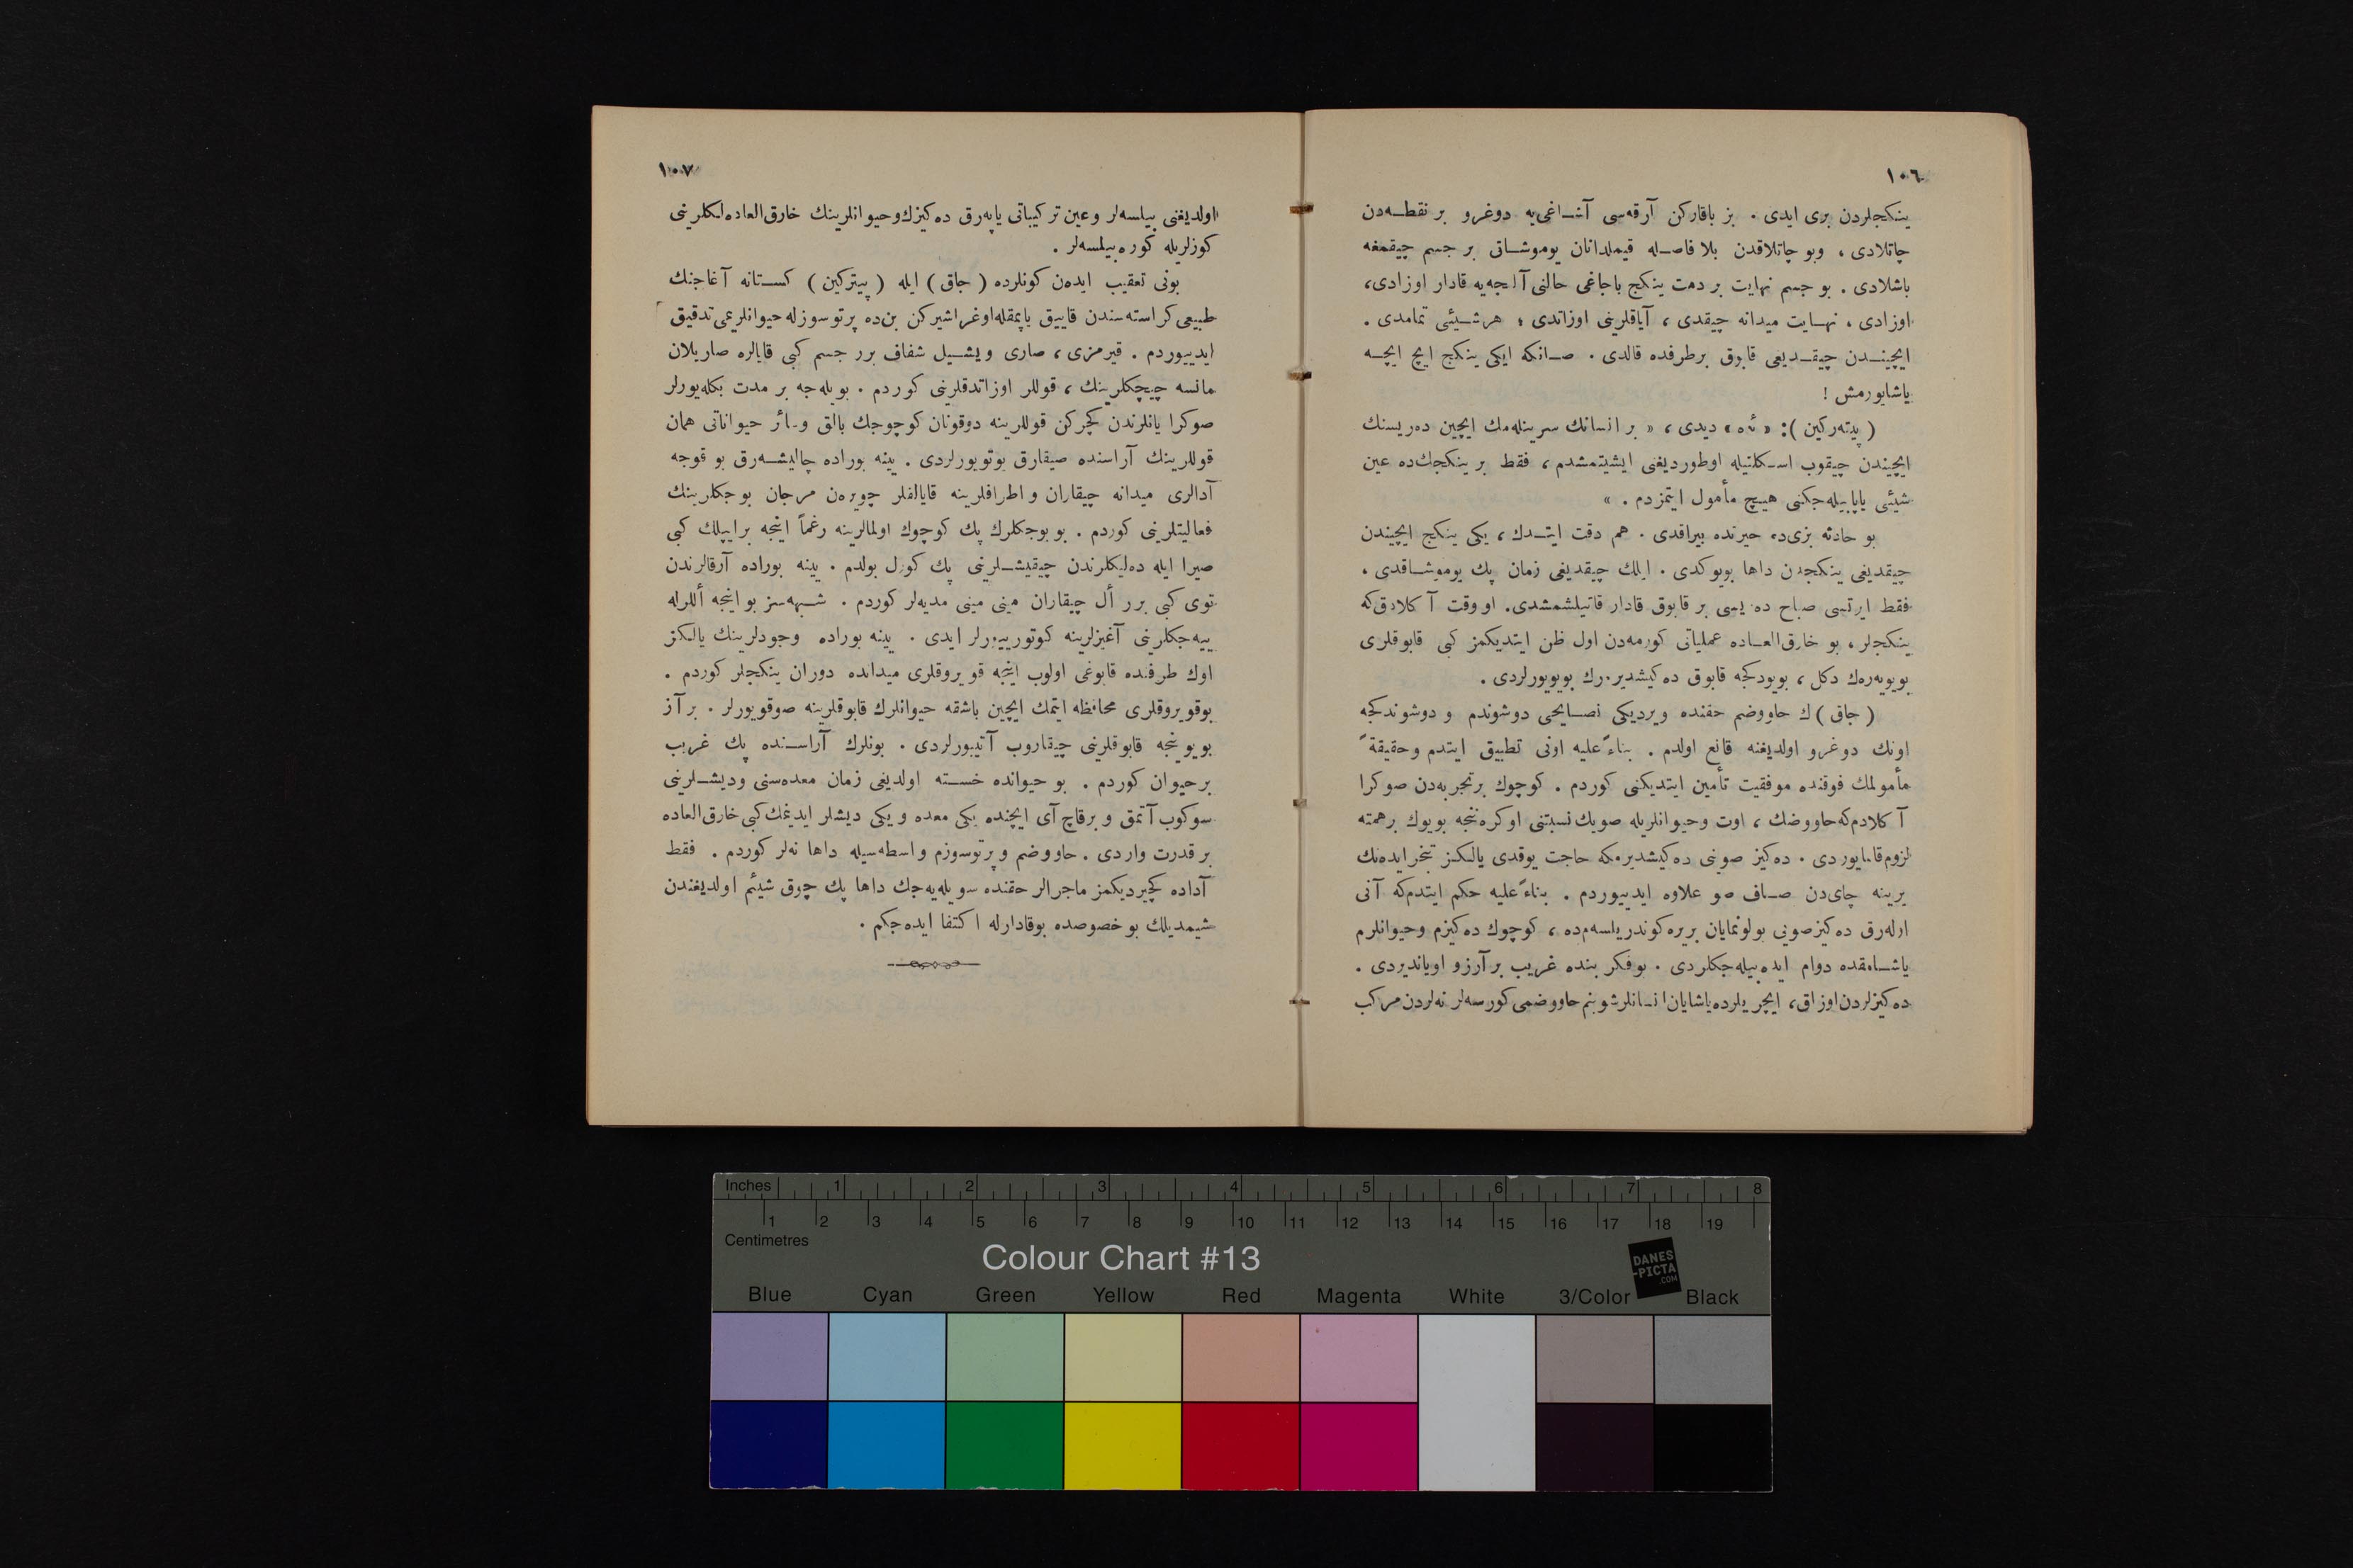 ١٠٦
ينكجلردن بری ایدی . بز باقاركن آرقه‌سی آشـاغی‌یه دوغرو بر نقطـه‌دن
چاتلادی ، وبو چاتلاقدن بلا فاصـله قیملدانان یوموشـاق بر جسم چیقمغه
باشلادی . بو جسم نهایت بر دمت ینكج باجاغی حالنی آلجه‌یه قادار اوزادی،
اوزادی ، نهـایت میدانه چیقدی ، آیاقلرینی اوزاتدی ؛ هرشـیئی تمامدی .
ایچینـدن چیقـدیغی قابوق برطرفده قالدی . صـانكه ایكی ینكج ایچ ایچـه
یاشایورمش !
( پیته‌ركین ): « ئه‌ » دیدی ، « بر انسانك سرینله‌مك ایچین ده‌ریسنك
ایچیندن چیقوب اسـكلتیله اوطوردیغنی ایشیتمشدم ، فقط بر ینكجك‌ده عین
شیئی یاپابیله‌جكنی هیچ مأمول ایتمزدم . »
بو حادثه بزی‌ده حیرتده بیراقدی . هم دقت ایتـدك ، یكی ینكج ایچیندن
چیقدیغی ینكجدن داها بویوكدی . ایلك چیقدیغی زمان پك یوموشـاقدی .
فقط ایرتسی صباح ده‌ریسی بر قابوق قادار قاتیلشمشدی. او وقت آكلادق‌كه
ینكجلر ، بو خارق‌العـاده عملیاتی كورمه‌دن اول ظن ایتدیكمز كبی قابوقلری
بویویه‌رەك دكل ، بویودكجه قابوق ده‌كیشدیره‌رك بویویورلردی .
( جاق ) ك حاووضم حقنده ویردیكی نصـایحی دوشوندم و دوشوندكجه
اونك دوغرو اولدیغنه قانع اولدم . بناءً علیه اونی تطبیق ایتدم وحقیقةً
مأمولمك فوقنده موفقیت تأمین ایتدیكنی كوردم . كوچوك برتجربه‌دن صوكرا
آكلادم‌كه حاووضك ، اوت وحیوانلریله صویك نسبتنی اوكره‌ننجه بویوك برهمته
لزوم قالمایوردی . ده‌كیز صوینی ده‌كیشدیرمكه حاجت یوقدی یالكـز تبخر ایده‌نك
یرینه چای‌دن صـاف صو علاوه ایدییوردم . بناءً علیه حكم ایتدم‌كه آنی
اوله‌رق ده‌كیز صویی بولونمایان بریره كوندریلسه‌م‌ده ، كوچوك ده‌كیزم وحیوانلرم
یاشـامقده دوام ایده‌بیله‌جكلردی . بوفكر بنده غریب برآرزو اویاندیردی .
ده‌كیزلردن اوزاق، ایچریلرده یاشایان انسانلر شو بنم حاووضمی كورسه‌لر نه‌لردن مركب
١٠٧
اولدیغنی بیلسه‌لر وعین تركیباتی یاپه‌رق ده‌كیزك وحیوانلرینك خارق‌العاده‌لكلرینی
كوزلریله كوره‌بیلسه‌لر .
بونی تعقیب ایده‌ن كونلرده ( جاق ) ایله ( پیتركین ) كسـتانه آغاجنك
طبیعی كراسته‌سندن قاییق یاپمقله اوغراشیركن بن‌ده پرتوسوزله حیوانلریمی تدقیق
ایدییوردم . قیرمزی ، صاری ویشـیل شفاف برر جسم كبی قایالره صاریلان
مانسه چیچكلرینك ، قوللر اوزاتدقلرینی كوردم . بویله‌جه بر مدت بكله‌یورلر
صوكرا یانلرندن كچركن قوللرینه دوقونان كوچوجك بالق وسائر حیواناتی همان
قوللرینك آراسنده صیقارق یوتویورلردی . یینه بوراده چالیشـه‌رق بو قوجه
آدالری میدانه چیقاران و اطرافلرینه قایالقلر چویره‌ن مرجان بوجكلرینك
فعالیتلرینی كوردم . بو بوجكلرك پك كوچوك اولمالرینه رغماً اینجه برایپلك كبی
صیرا ایله ده‌لیكلرندن چیقیشـلرینی پك كوزل بولدم . یینه بوراده آرقالرندن
توی كبی برر أل چیقاران مینی مینی مدیه‌لر كوردم . شـبهه‌سز بو اینجه أللرله
ییه‌جكلرینی آغیزلرینه كوتوریییورلر ایدی . یینه بوراده وجودلرینك یالكـز
اوك طرفنده قابوغی اولوب اینجه قویروقلری میدانده دوران ینكجلر كوردم .
بوقویروقلری محافظه ایتمك ایچین باشقه حیوانلرك قابوقلرینه صوقویورلر . برآز
بویوینجه قابوقلرینی چیقاروب آتییورلردی . بونلرك آراسـنده پك غریب
برحیوان كوردم . بو حیوانده خسـته اولدیغی زمان معده‌سنی ودیشـلرینی
سوكوب آتمق و برقاچ آی ایچنده یكی معده و یكی دیشلر ایدینمك كبی خارق‌العاده
بر قدرت واردی . حاووضم وپرتوسوزم واسطه‌سیله داها نه‌لر كوردم . فقط
آداده كچیردیكمز ماجرالر حقنده سویله‌یه‌جك داها پك چوق شیئم اولدیغندن
شیمدیلك بو خصوصده بوقادارله اكتفا ایده‌جكم .
Inches 1 2 3 4 5 6 7 8
1 2 3 4 5 6 7 8 9 10 11 12 13 14 15 16 17 18 19
Centimetres
Colour Chart #13
DANES
-PICTA
.COM
Blue Cyan Green Yellow Red Magenta White 3/Color Black